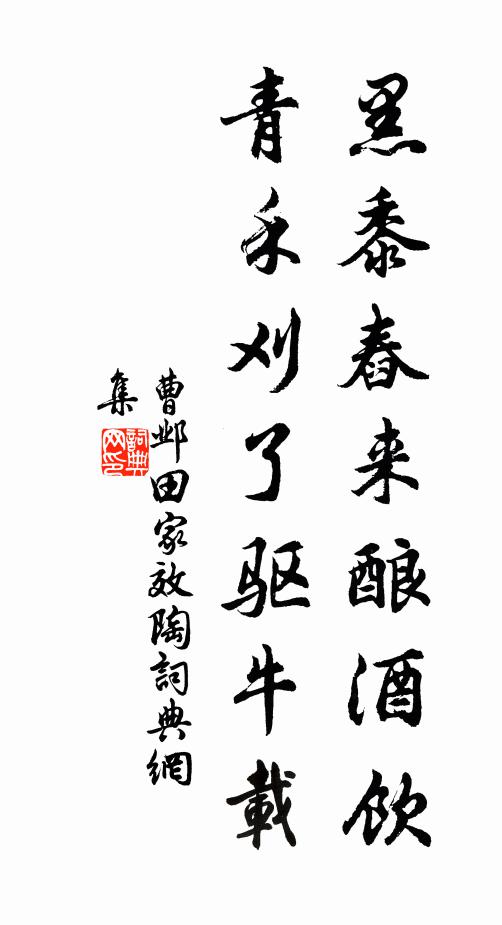 黑黍舂来酿酒饮
青禾刈了驱牛載
曹邺田家效陶詞典網
集
詞典
网印